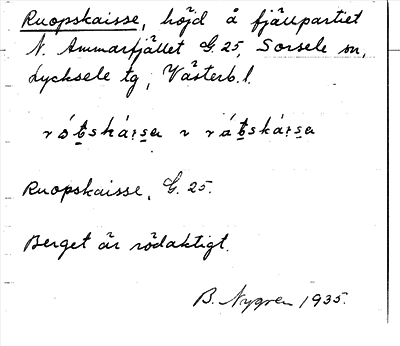 Ruopskaisse, höjd å fjällpartiet
N. Ammarfjället G. 25, Sorsele sn,
Lycksele tg, Västerb. l.
Ruopskaisse, G. 25.
Berget är rödaktigt.
B. Nygren 1935.